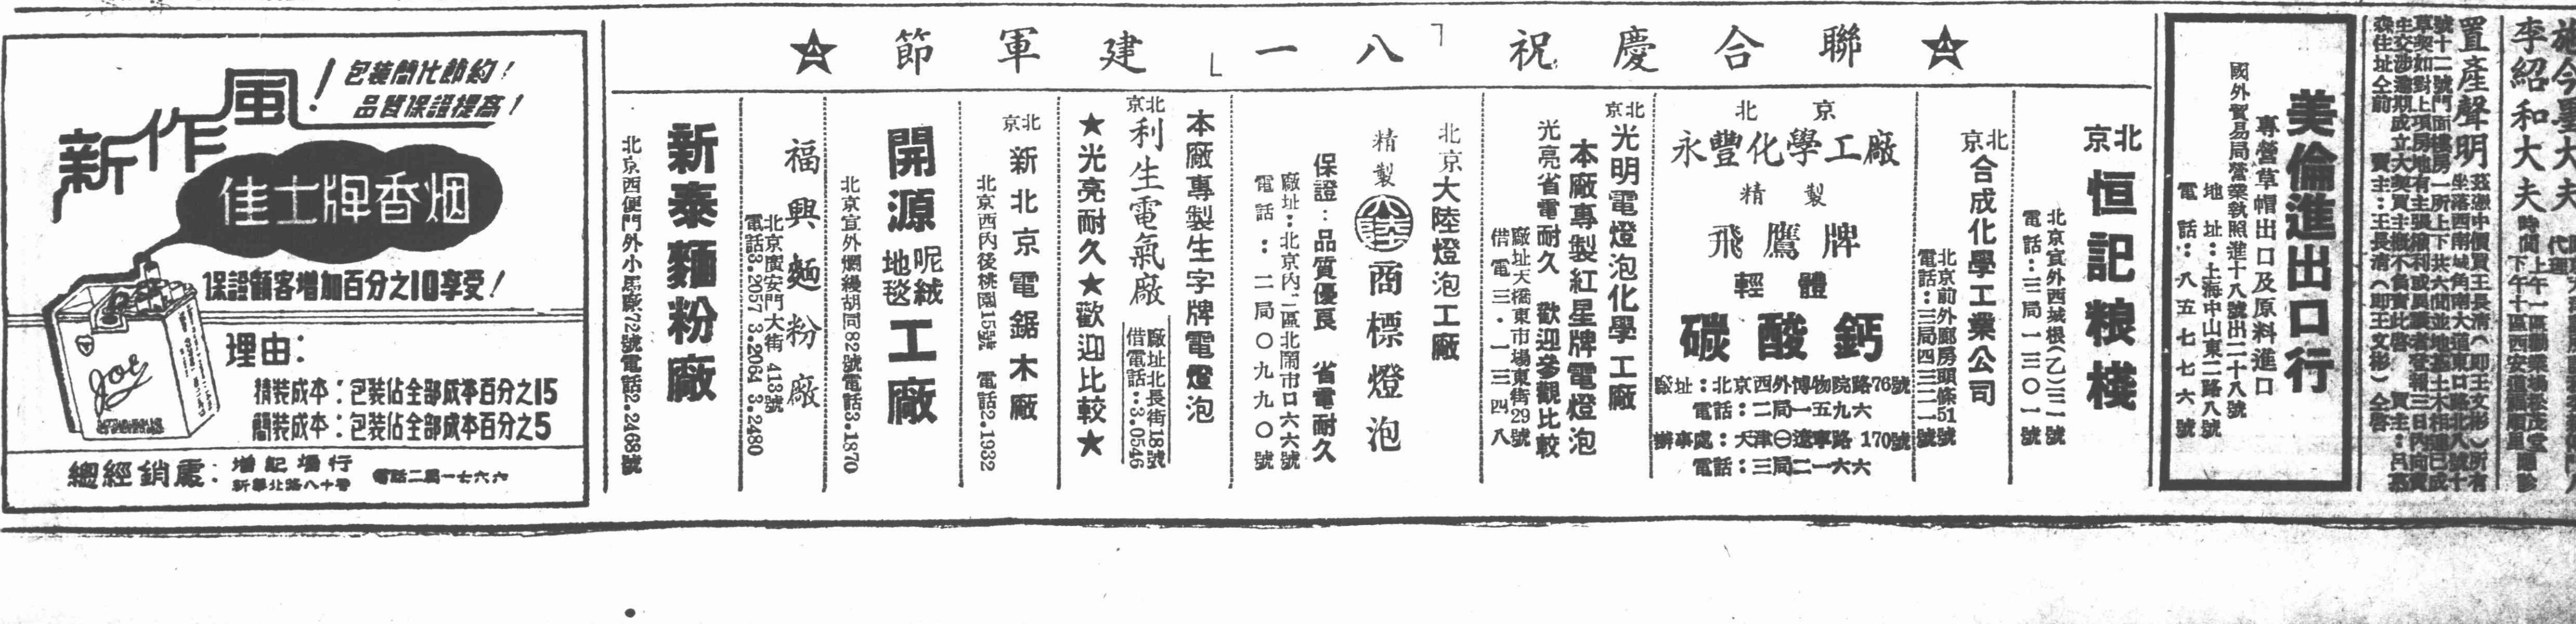 李紹和大夫
置產聲明
美倫進出口行
專營草帽出口及原料進口
國外貿易局營業執照進十八號出二十八號
地址：上海中山東二路八號
電話：八五七七六號
聯合慶祝「八一」建軍節
北京
恒記粮棧
北京宣外西城根(乙)三二號
電話：三局一三〇一號
北京合成化學工業公司
北京前外廊房頭條51號
電話：三局四三二一號
北京
永豐化學工廠
精製
飛鷹牌
輕體
碳酸鈣
廠址：北京西外博物院路76號
電話：二局一五九六
辦事處：天津㊀遼寧路170號
電話：三局二一六六
北京光明電燈泡化學工廠
本廠專製紅星牌電燈泡
光亮省電耐久 歡迎參觀比較
廠址天橋東市場東街29號
借電三·一三四八
北京大陸燈泡工廠
精製
商標燈泡
保證：品質優良 省電耐久
廠址：北京內二區北鬧市口六六號
電話：二局〇九九〇號
本廠專製生字牌電燈泡
北京利生電氣廠
廠址北長街18號
借電話：3.0546
★光亮耐久★歡迎比較★
北京新北京電鋸木廠
北京西內後桃園15號 電話2.1932
開源呢絨地毯工廠
北京宣外爛縵胡同82號電話3.1870
福興麵粉廠
北京廣安門大街413號
電話3.2057 3.2064 3.2480
新泰麵粉廠
北京西便門外小馬廠72號電話2.2468號
新作風！
包裝簡化節約！
品質保證提高！
佳士牌香烟
保證顧客增加百分之10享受！
Joy
理由：
精裝成本：包裝佔全部成本百分之15
簡裝成本：包裝佔全部成本百分之5
總經銷處：增記場行
新華北路八十號
電話二局一七六六